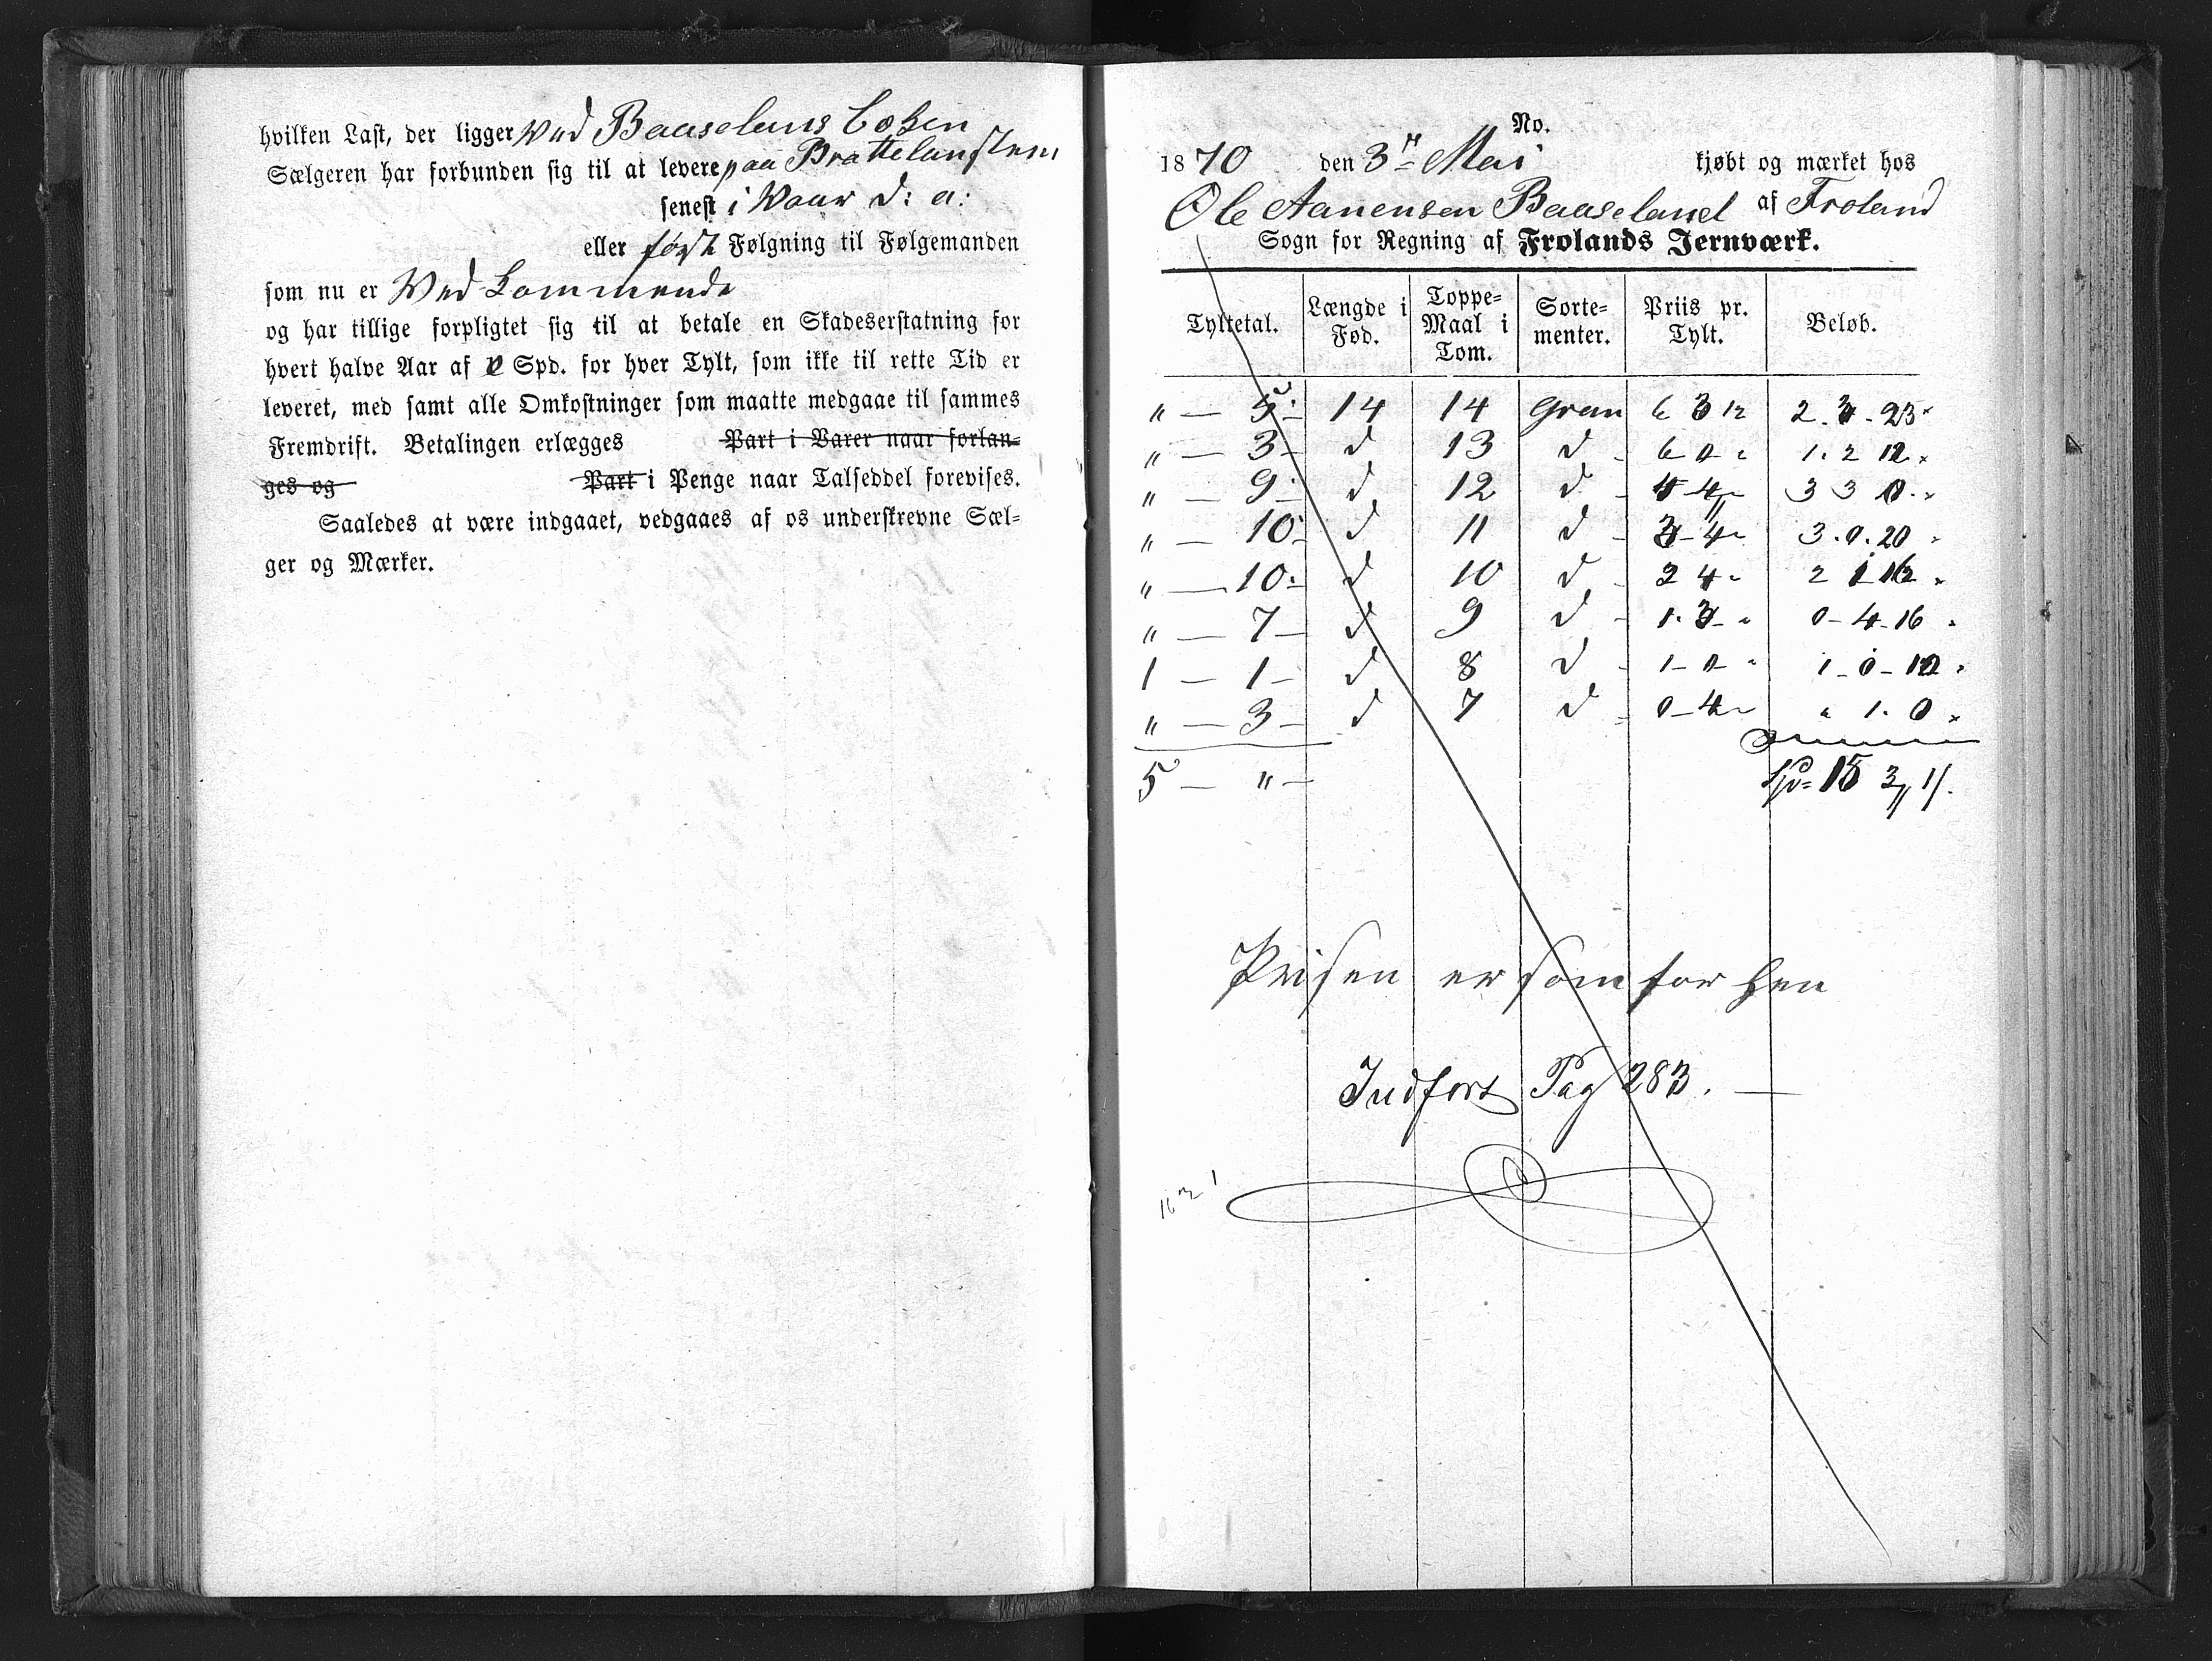 hvilken Last, der ligger Wed Baaselans Bohen
Sælgeren har forbunden sig til at levere paa Brattelansten
senest i Waar d: a:
eller først Følgning til Følgemanden
som nu er Wed Kommende
og har tillige forpligtet sig til at betale en Skadeserstatning for
hvert halve Aar af Spd. for hver Tylt, som ikke til rette Tid er
leveret, med samt alle Omkostninger som maatte medgaae til sammes
Fremdrift. Betalingen erlægges Part i Varer naar forlan=
ges og Part i Penge naar Talseddel forevises.
Saaledes at være indgaaet, vedgaaes af os underskrevne Sæl=
ger og Mærker.
No.
1870 den 3die Mai kjøbt og mærket hos
Ole Aanensen Baaseland af Froland
Sogn for Regning af Frolands Jernværk.
Tyltetal. Længde i Fod. Toppe=Maal i Tom. Sorte=menter. Priis pr. Tylt. Beløb.
" — 5 14 14 Gran 6 3 12 2. 3 - 23
" — 3 d 13 d 6 0 " 1. 2 12
" — 9 d 12 d 4 4 " 3 3 0
" — 10 d 11 d 3 - 4 " 3. 0. 20
" — 10 d 10 d 2 4 " 2 1 16
" — 7 d 9 d 1. 3 - " 0 - 4 - 16
1 — 1 d 8 d 1 - 0 - " 1 - 0 - 10
" — 3 d 7 d 0 - 4 " " 1. 0
5 — " Spd= 15 3 " 1 "
Prisen er som før hen
Indført Pag 283. —